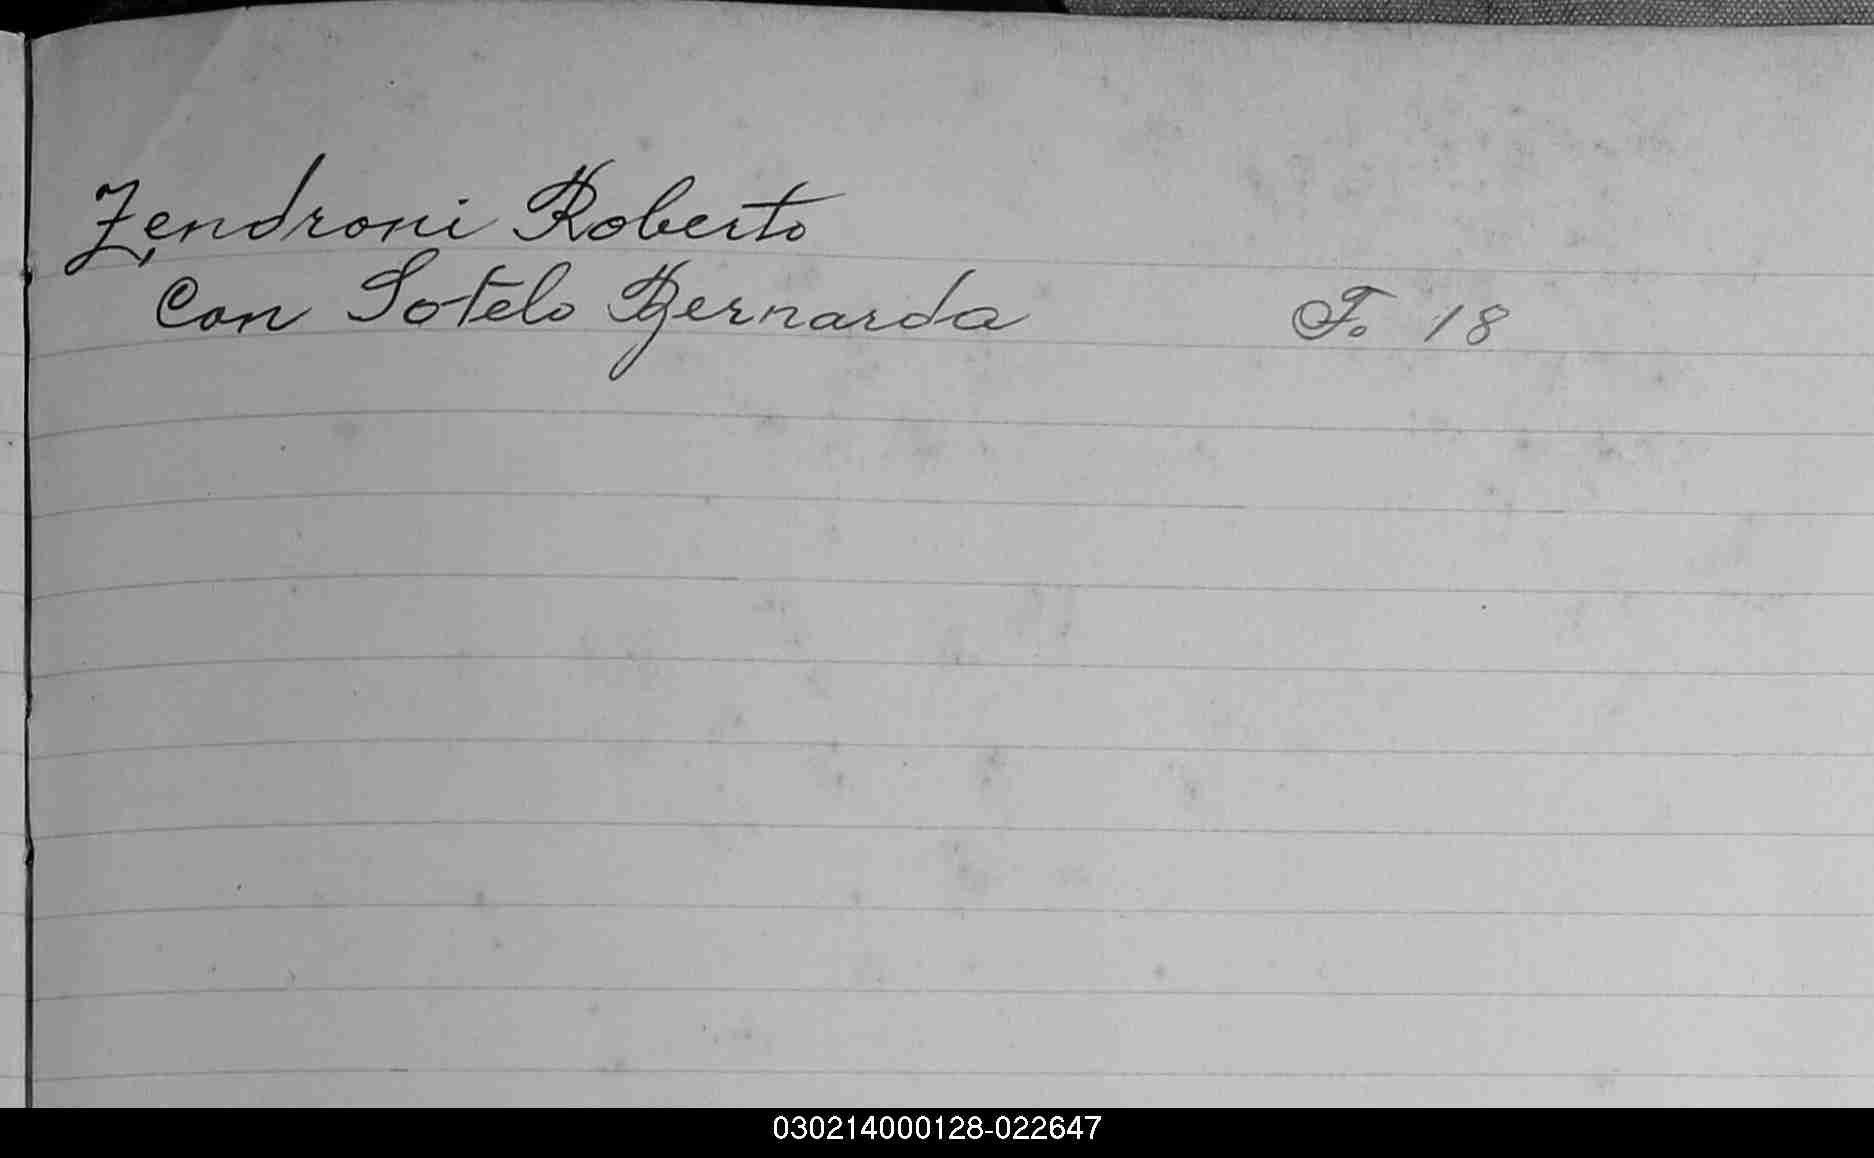 Zendroni Roberto
Con Sotelo Bernarda F. 18
030214000128-022647